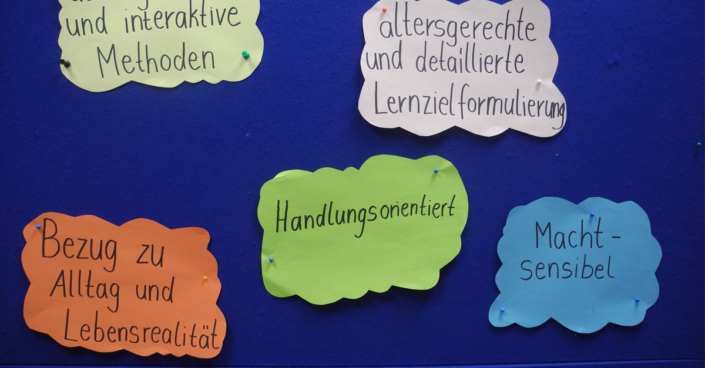 und interaktive
Methoden
altersgerechte
und detaillierte
Lernzielformulierung
Handlungsorientiert
Bezug zu
Alltag und
Lebensrealität
Macht-
sensibel